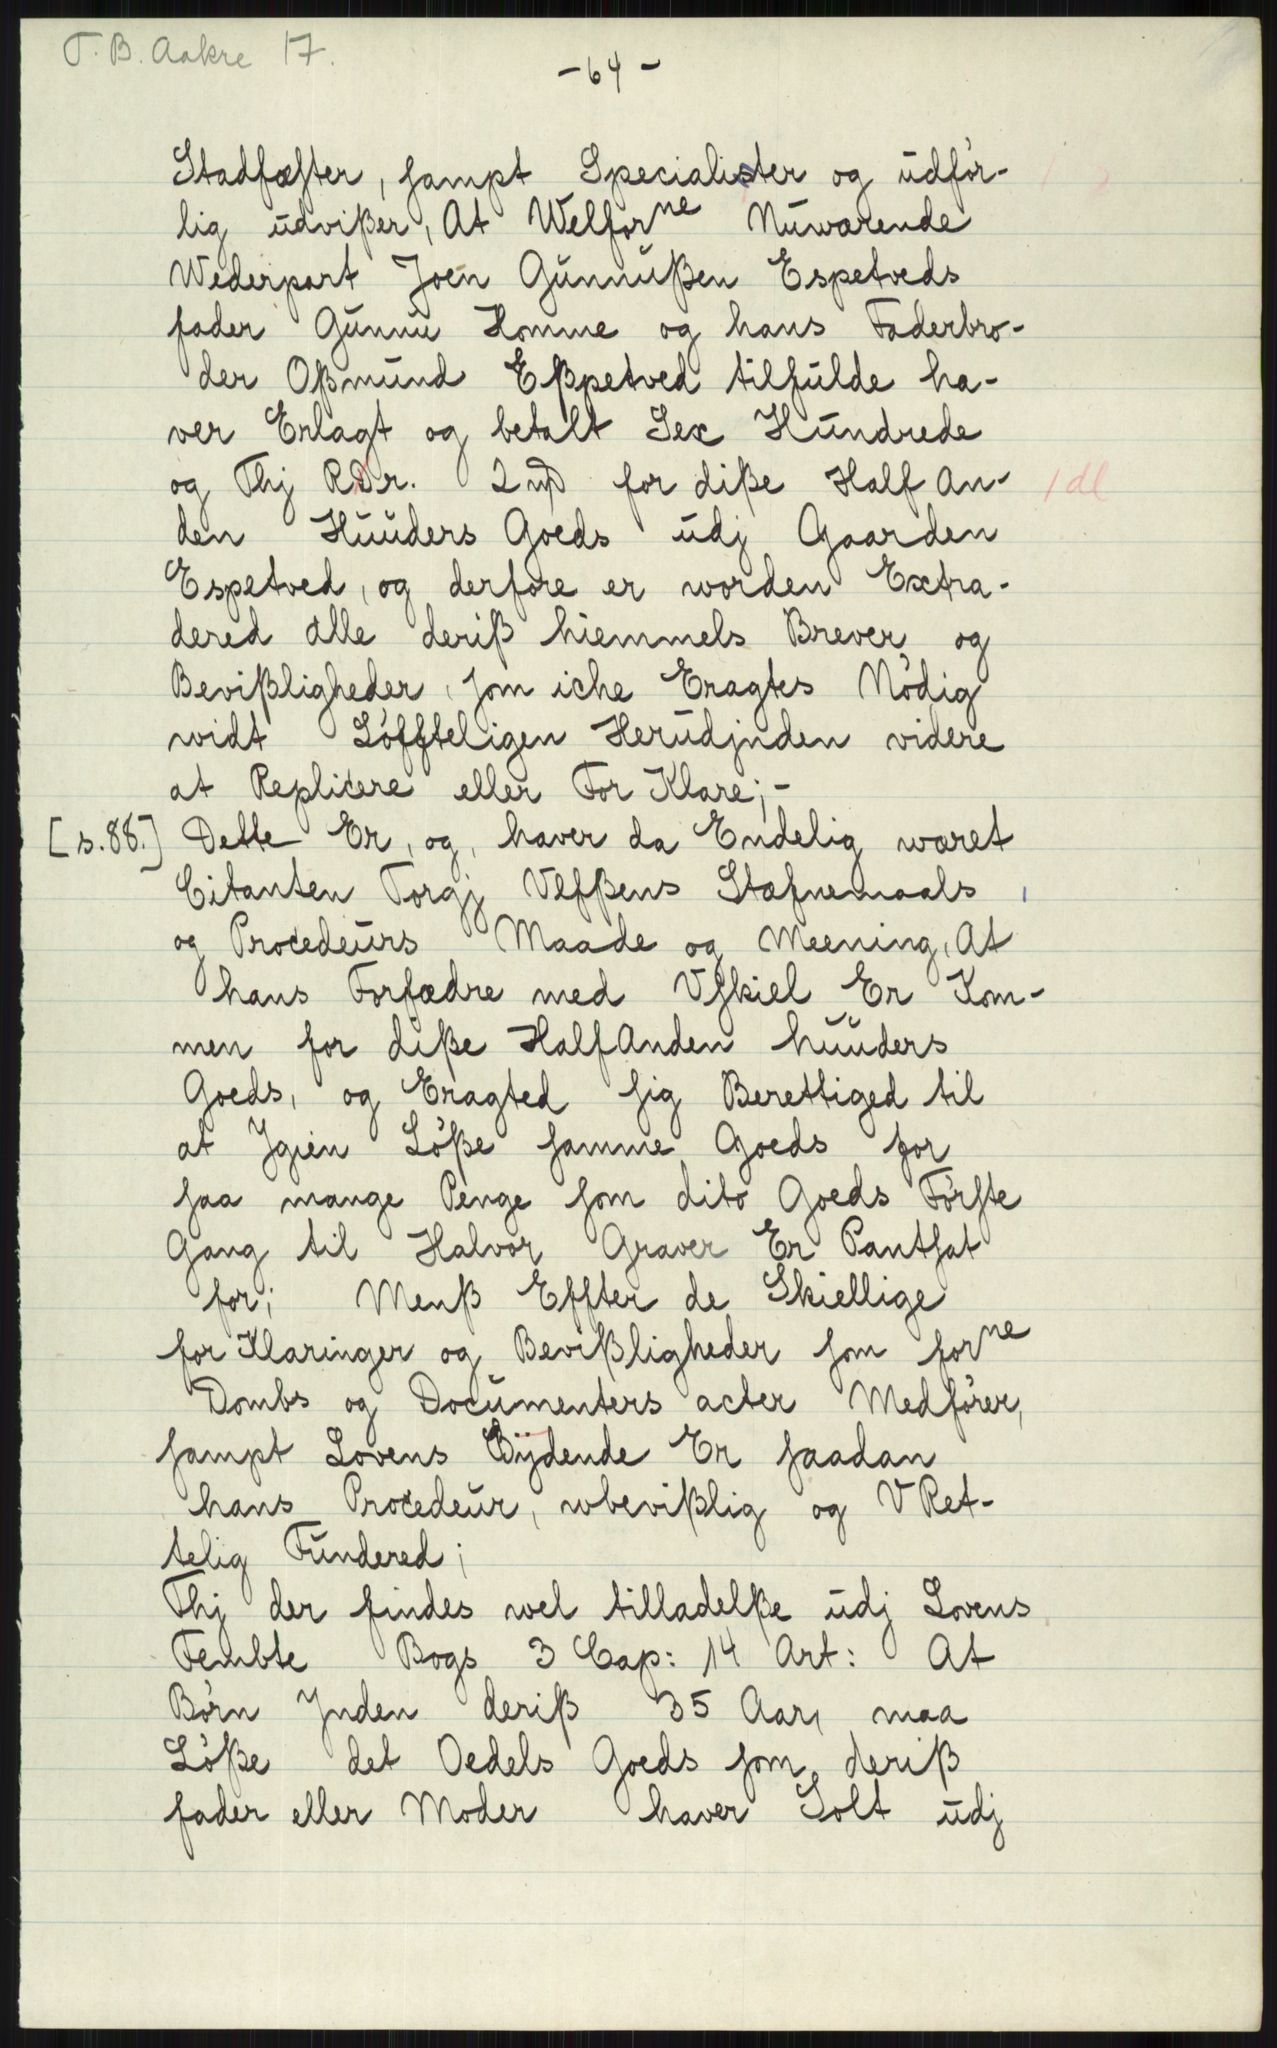 T.B. Aakre 17.
- 64 -
Stadfæster, sampt Specialister og udfør-
lig udvißer, At Welforne Nuwarende
Wederpart Joen Gunnußen Espetveds
fader Gunnu Homme og hans Faderbro-
der Oßmund Eßpetved tilfulde ha-
ver Erlagt og betalt Sex Hundrede
og Thj RDr. 2 for diße Half An- 1 dl
den Huuders Goeds udj Gaarden
Espetved, og derfore er worden Extra-
dered alle deriß hiemmels Brever og
Bevißligheder, som iche Eragtes Nödig
widt Löffteligen Herudjnden videre
at Replicere eller For Klare; -
[s. 88.] Dette Er, og, haver da Endelig wæret
Citanten Torgj Ulfßens Stæfnemaals
og Procedeurs Maade og Meening, At
hans Forfædre med Uskiel Er Kom-
men for diße Half Anden huuders
Goeds, og Eragted sig Berettiged til
at Jgien Löße samme Goeds for
saa mange Penge som dito Goeds Förste
Gang til Halvor Graver Er Pantsat
for; Menß Effter de Skiellige
for Klaringer og Bevißligheder som forne
Dombs og Documenters acter Medförer,
sampt Lovens Bydende Er saadan
hans Procedeur, wbevißlig og URet-
telig Fundered;
Thj der findes wel tilladelße udj Lovens
Fembte Bogs 3 Cap: 14 Art: At
Börn Jnden deriß 35 Aar, maa
Löße det Oedels Goeds som deriß
fader eller Moder haver Solt udj